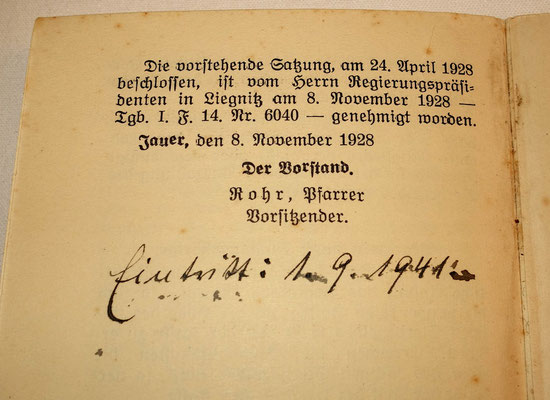 Die vorstehende Satzung, am 24. April 1928
beschlossen, ist vom Herrn Regierungspräsi-
denten in Liegnitz am 8. November 1928 —
Tgb. I. F. 14. Nr. 6040 — genehmigt worden.
Jauer, den 8. November 1928
Der Vorstand.
Rohr, Pfarrer
Vorsitzender.
Eintritt: 1. 9. 1941.